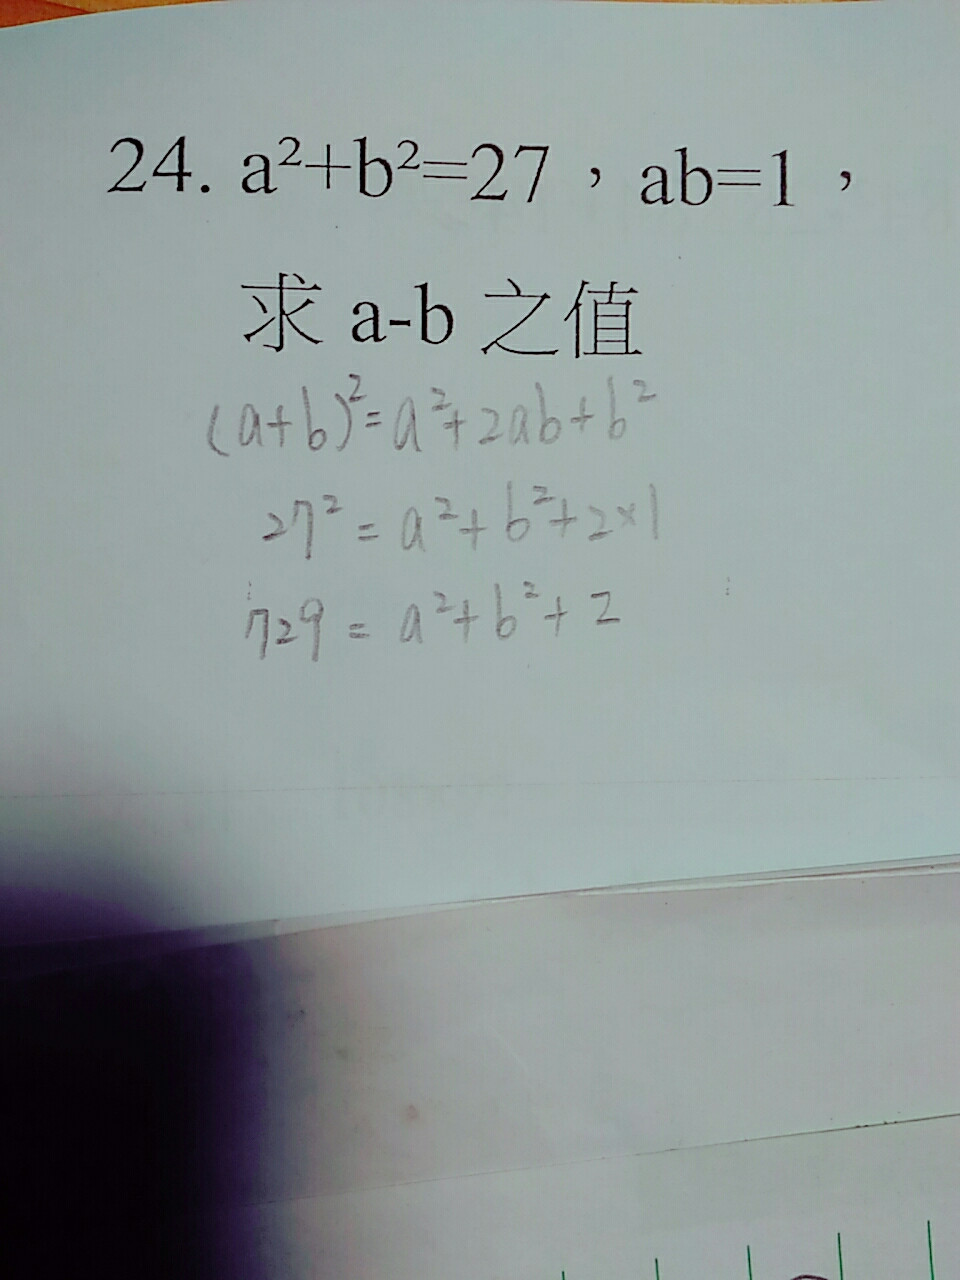 24. a²+b²=27，ab=1，
求 a-b 之值
(a+b)²=a²+2ab+b²
27²=a²+b²+2×1
729=a²+b²+2